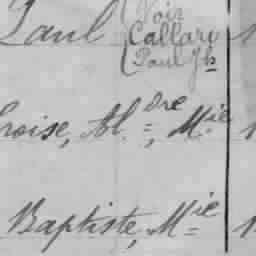 Paul (Voir
Callary
Paul Jh
roise, Al.dre, Mie
Baptiste, Mie